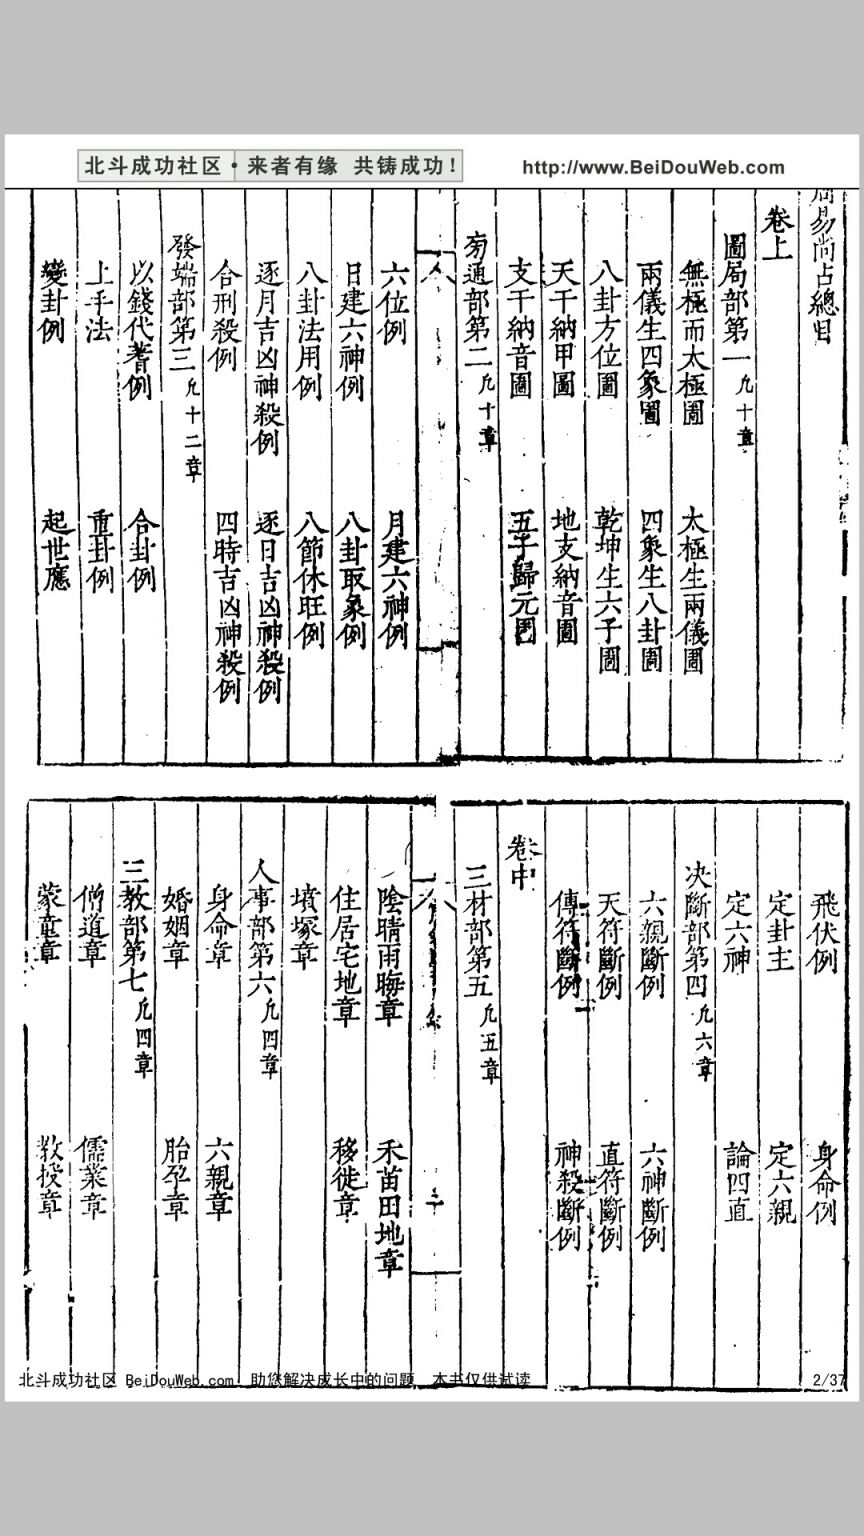 北斗成功社区·来者有缘 共铸成功！
http://www.BeiDouWeb.com
周易尚占總目
卷上
圖局部第一 凡十章
無極而太極圖 太極生兩儀圖
兩儀生四象圖 四象生八卦圖
八卦方位圖 乾坤生六子圖
天干納甲圖 地支納音圖
支干納音圖 五子歸元圖
旁通部第二 凡十章
六位例 月建六神例
日建六神例 八卦取象例
八卦法用例 八節休旺例
逐月吉凶神殺例 逐日吉凶神殺例
合刑殺例 四時吉凶神殺例
發端部第三 凡十二章
以錢代蓍例 合卦例
上手法 重卦例
變卦例 起世應
飛伏例 身命例
定卦主 定六親
定六神 論四直
决斷部第四 凡六章
六親斷例 六神斷例
天符斷例 直符斷例
傳符斷例 神殺斷例
卷中
三材部第五 凡五章
陰晴雨晦章 禾苗田地章
住居宅地章 移徙章
墳塚章
人事部第六 凡四章
身命章 六親章
婚姻章 胎孕章
三教部第七 凡四章
僧道章 儒業章
蒙童章 教授章
北斗成功社区 BeiDouWeb.com 助您解决成长中的问题 本书仅供试读
2/37